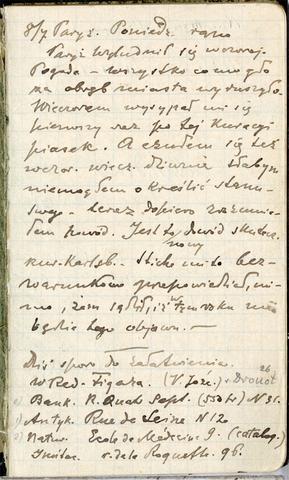 8/7 Paryż. Poniedz. rano
Paryż wyludnił się wczoraj.
Pogoda – wszystko co mogło
za obręb miasta wyruszyło.
Wieczorem wysypał mi się
pierwszy raz po tej kuracyi
piasek. A czułem się też
wczor. wiecz. dziwnie słabym
niemogłem określić stanu
swego – teraz dopiero zrozumia-
łem powód. Jest to dowód skutecz-
nowy
kur. Karlsb. – Sticho mi to bez-
warunkowo przepowiedział, mi-
mo, żem sądził, iż w tym roku nie
będzie tego objawu. –
Dziś sporo do załatwienia.
Red. Figara. (V. Joź.) Drouot 26
Bank. R. Quatr Sept. (550 fr) N 31.
Antyk. Rue de Seine N 12
Natur. Ecole de Medecine 9. (catalog.)
r. de la Roquette. 96.